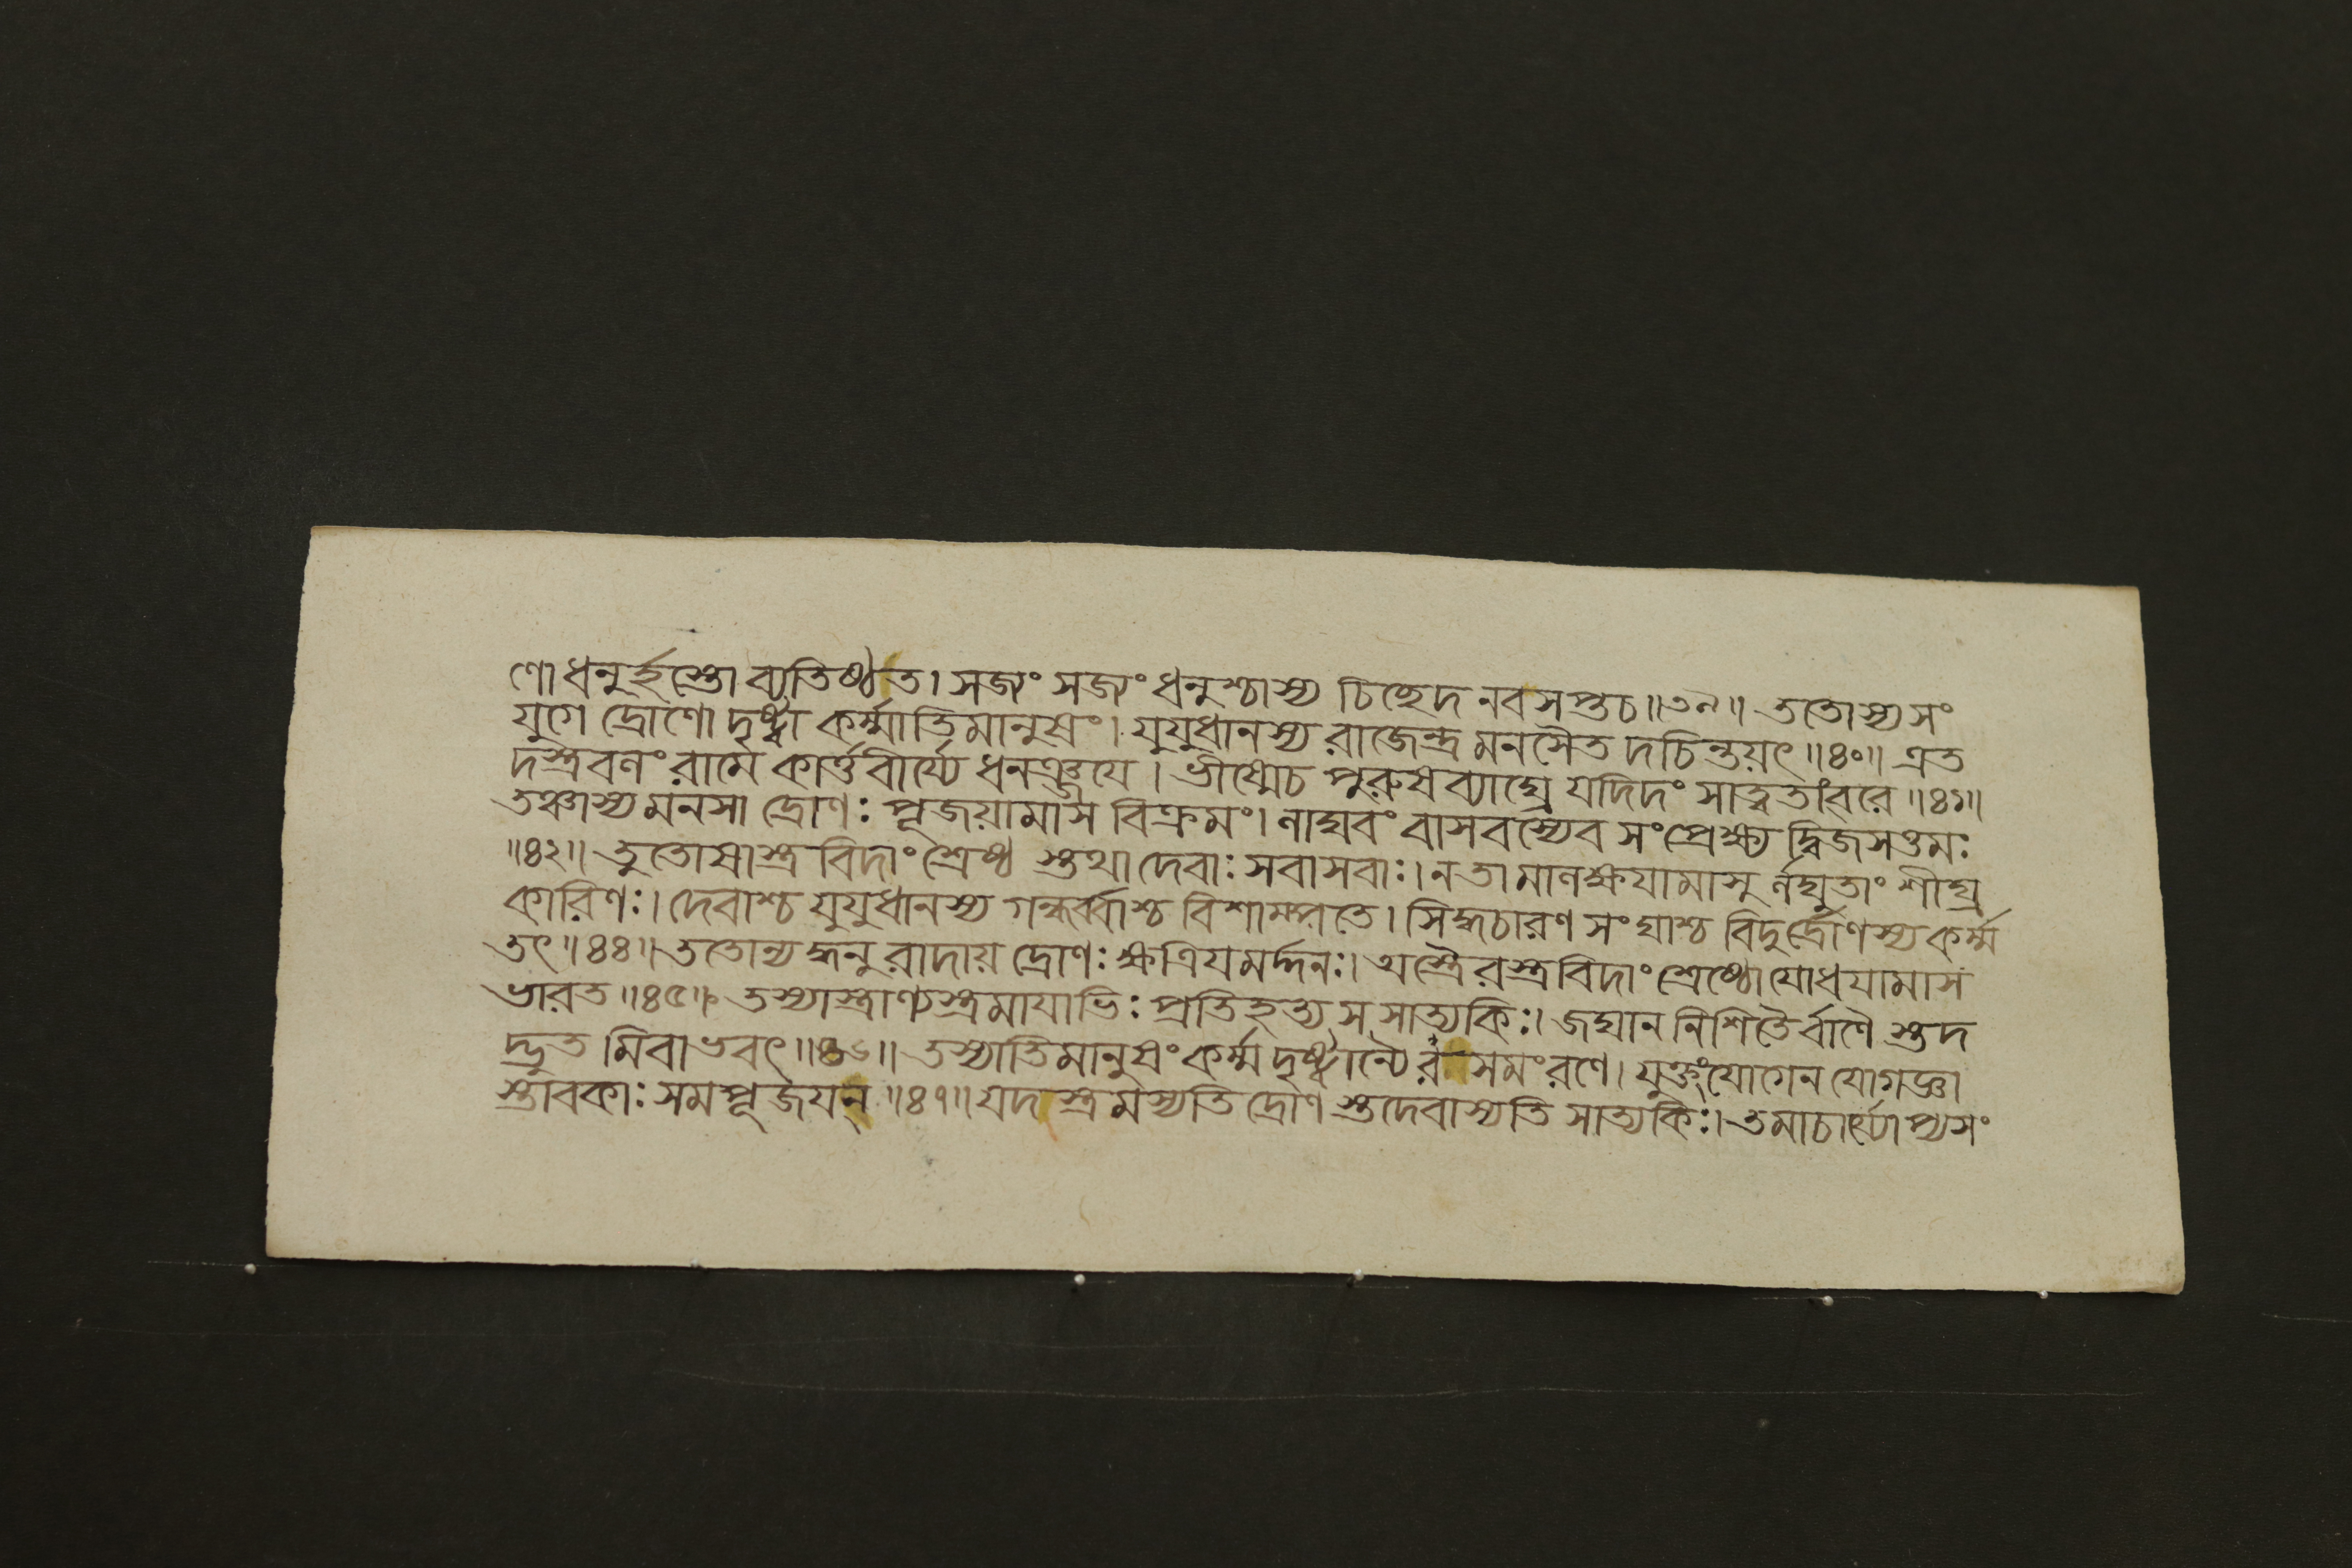 ণোধনুর্হস্তোব্যতিষ্ঠত। সজ্যং সজ্যং ধনুশ্চাস্য চিচ্ছেদ নবসপ্তচ॥৩৯॥ ততোস্যসং
যুগে দ্রোণো দৃষ্ট্বা কর্ম্মাতিমানুষং। যুযুধানস্য রাজেন্দ্র মনসৈত দচিন্তয়ৎ॥৪০॥ এত
দস্ত্রবণং রামে কার্ত্তবীর্য্যে ধনঞ্জয়ে। ভীষ্মেচ পুরুষব্যাঘ্রে যদিদং সাত্ত্বতাংবরে॥৪১॥
তঞ্চাস্যমনসা দ্রোণঃ পূজয়ামাস বিক্রমং। ণাঘবং বাসবস্যেব সংপ্রেক্ষ্য দ্বিজসত্তমঃ
॥৪২॥ তুতোষাস্ত্রবিদাংশ্রেষ্ঠ স্তথা দেবাঃ সবাসবাঃ। নতামাণক্ষয়ামাসু র্ণঘুতাং শীঘ্র
কারিণঃ। দেবাশ্চ যুযুধানস্য গন্ধর্ব্বাশ্চ বিশাম্পতে। সিদ্ধচারণ সংঘাশ্চ বিদুর্দ্রোণস্যকর্ম্ম
তৎ॥৪৪॥ ততোন্যদ্ধনু রাদায় দ্রোণঃ ক্ষত্রিয়মর্দ্দনঃ। অস্ত্রৈরস্ত্রবিদাংশ্রেষ্ঠোযোধয়ামাস
ভারত॥৪৫॥ তস্যাস্ত্রাণ্যস্ত্রমায়াভিঃ প্রতিহত্য স সাত্যকিঃ। জঘান নিশিতৈর্বাণৈ স্তদ
দ্ভুত মিবাভবৎ॥৪৬॥ তস্যাতিমানুষংকর্ম্ম দৃষ্ট্বান্যৈর সমংরণে। যুক্তংযোগেন যোগজ্ঞা
স্তাবকাঃ সমপূজয়ন্॥৪৭॥ যদস্ত্রমস্যতি দ্রোণ স্তদেবাস্যতি সাত্যকিঃ। তমাচার্য্যোপ্যসং